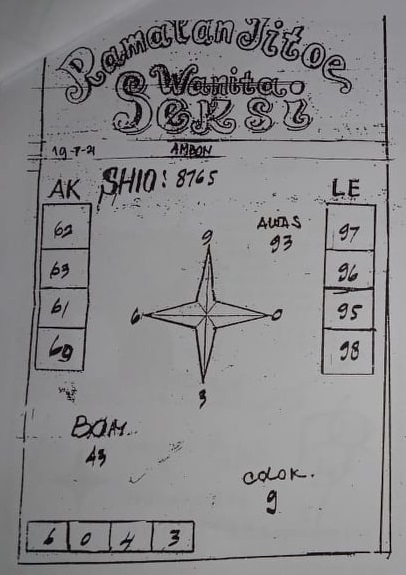 Ramalan Jitoe
Wanita
Seksi
AMBON
SHIO: 8765
AK
LE
62
63
61
69
97
96
95
98
AWAS
93
9
6
0
3
BOM
43
COLOK.
9
6 0 4 3